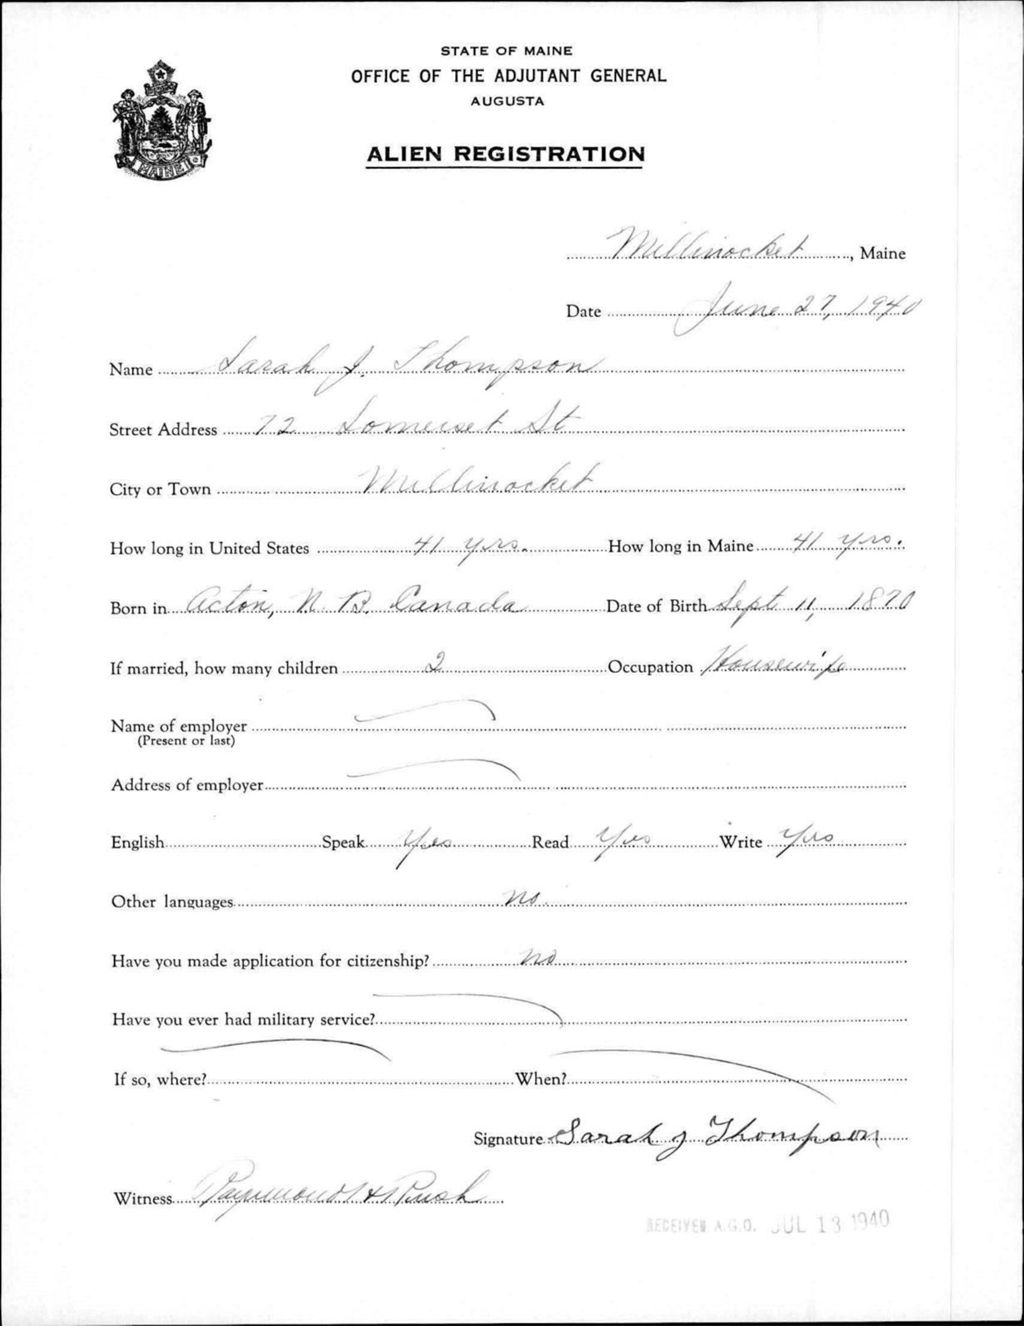 STATE OF MAINE
OFFICE OF THE ADJUTANT GENERAL
AUGUSTA
ALIEN REGISTRATION
MAINE
Millinocket, Maine
Date June 27, 1940
Name Sarah J. Thompson
Street Address 72 Somerset St
City or Town Millinocket
How long in United States 41 yrs. How long in Maine 41 yrs.
Born in Acton, N. B. Canada Date of Birth Sept 11, 1870
If married, how many children 2 Occupation Housewife
Name of employer
(Present or last)
Address of employer
English Speak Yes Read Yes Write Yes
Other languages no.
Have you made application for citizenship? no
Have you ever had military service?
If so, where? When?
Signature Sarah J Thompson
Witness Raymond H Rush
RECEIVED A.G.O. JUL 13 1940